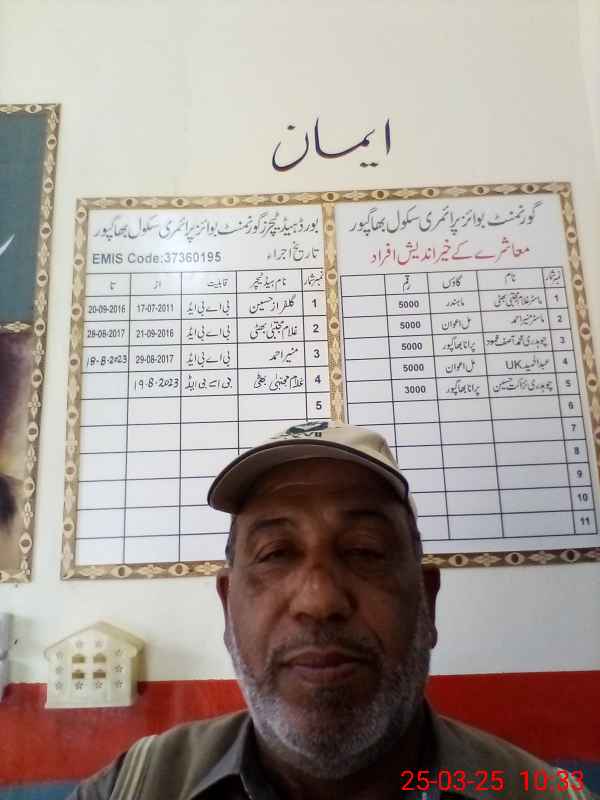 ایمان
گورنمنٹ بوائز پرائمری سکول بھاگپور
معاشرے کے خیر اندیش افراد
نمبر شمار نام گاؤں رقم
1 ماسٹر غلام مجتبیٰ بھٹی 5000
2 ماسٹر منیر احمد مل اعوان 5000
3 چوہدری محمد آصف محمود پرانا بھاگپور 5000
4 عبدالحمید UK مل اعوان 5000
5 چوہدری نزاکت حسین پرانا بھاگپور 3000
6
7
8
9
10
11
بورڈ ہیڈ ٹیچرز گورنمنٹ بوائز پرائمری سکول بھاگپور
تاریخ اجراء EMIS Code:37360195
نمبر شمار نام ہیڈ ٹیچر قابلیت از تا
1 گلفراز حسین بی اے بی ایڈ 17-07-2011 20-09-2016
2 غلام مجتبیٰ بھٹی بی اے بی ایڈ 21-09-2016 28-08-2017
3 منیر احمد بی اے بی ایڈ 29-08-2017 18-8-2023
4 غلام مجتبیٰ بھٹی بی ایڈ 19-8-2023
5
25-03-25 10:33